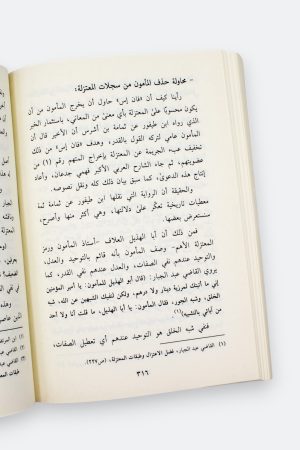 - محاولة حذف المأمون من سجلات المعتزلة:
رأينا كيف أن «فان إس» حاول أن يخرج المأمون من أن
يكون محسوبًا على المعتزلة بأي معنىً من المعاني، باستثمار الخبر
الذي رواه ابن طيفور عن ثمامة بن أشرس أن الأخير قال أن
المأمون عامي لتركه القول بالقدر، وهدف «فان إس» من ذلك
تخفيف عبء الجريمة عن المعتزلة بإخراج المتهم رقم (١) من
عضويتهم، ثم جاء الشارح العربي الأكبر فهمي جدعان، وأعاد
إنتاج هذه الدعوى، كما سبق بيان ذلك كله ونقل نصوصه.
والحقيقة أن الرواية التي نقلها ابن طيفور عن ثمامة ثمة
معطيات تاريخية تعكّر على دلالتها، وهي أكثر منها وأصرح،
سنستعرض بعضها.
فمن ذلك أن أبا الهذيل العلاف -أستاذ المأمون ورمز
المعتزلة الأهم- وصف المأمون بأنه قائم بالتوحيد والعدل،
والتوحيد عندهم نفي الصفات، والعدل عندهم نفي القدر، كما
يروي القاضي عبد الجبار: (قال أبو الهذيل للمأمون: يا أمير المؤمنين
إني ما آتيك لمرزية دينار ولا درهم، ولكن لنفيك الشبهين عن الله، شبه
الخلق، وشبه الجور، فقال المأمون: يا أبا الهذيل، ما قلت أنا ولا أحد
من آبائي بالتشبيه)(١)
فنفي شبه الخلق هو التوحيد عندهم أي تعطيل الصفات،
(١) القاضي عبد الجبار، فضل الاعتزال وطبقات المعتزلة، (ص٢٢٧).
٣١٦